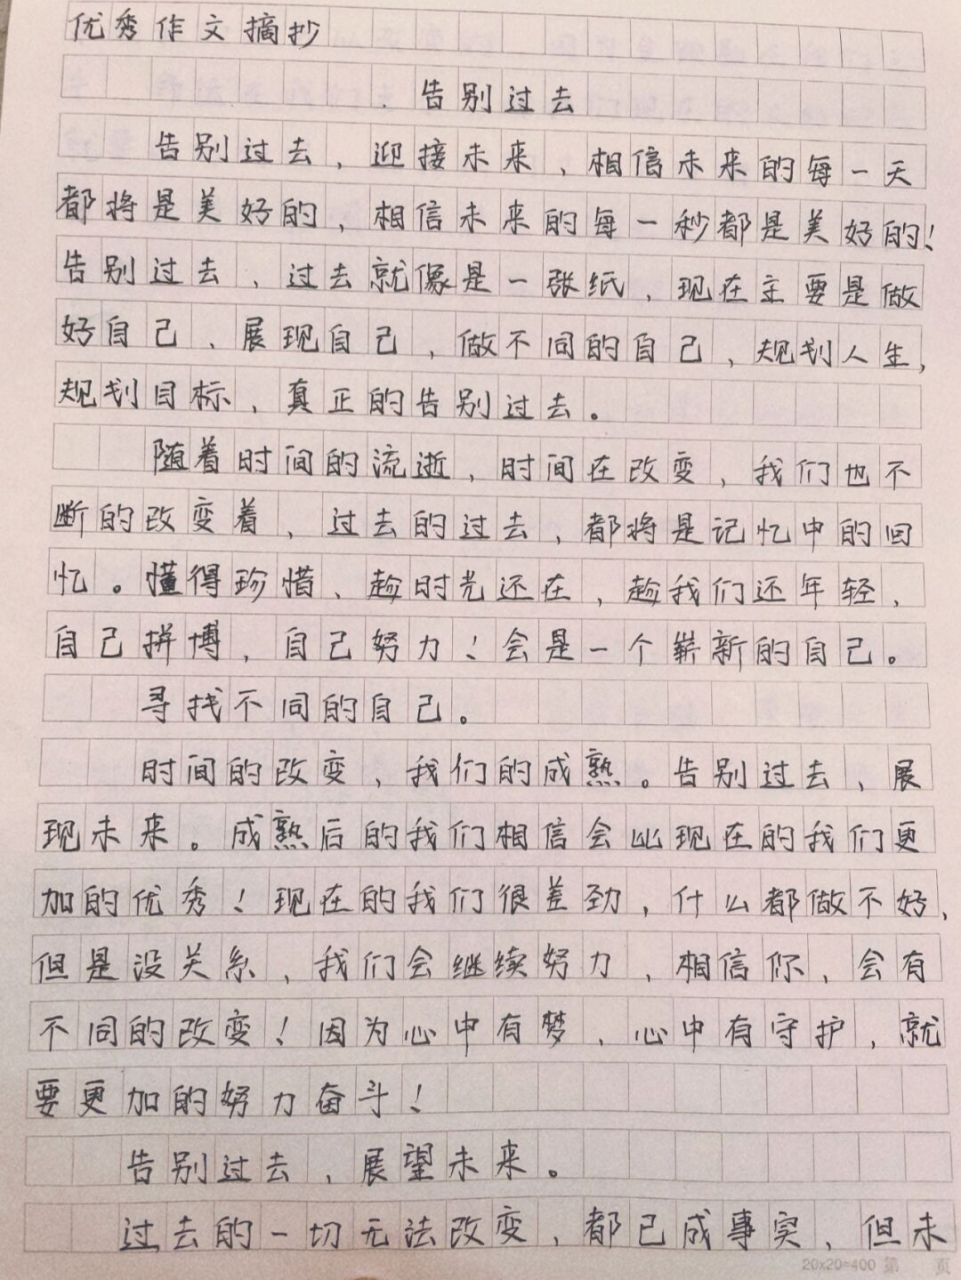 优秀作文摘抄
告别过去
告别过去,迎接未来,相信未来的每一天
都将是美好的,相信未来的每一秒都是美好的!
告别过去,过去就像是一张纸,现在主要是做
好自己、展现自己,做不同的自己,规划人生,
规划目标,真正的告别过去。
随着时间的流逝,时间在改变,我们也不
断的改变着,过去的过去,都将是记忆中的回
忆。懂得珍惜、趁时光还在,趁我们还年轻,
自己拼博,自己努力!会是一个崭新的自己。
寻找不同的自己。
时间的改变,我们的成熟。告别过去,展
现未来。成熟后的我们相信会比现在的我们更
加的优秀!现在的我们很差劲,什么都做不好,
但是没关系,我们会继续努力,相信你,会有
不同的改变!因为心中有梦,心中有守护,就
要更加的努力奋斗!
告别过去,展望未来。
过去的一切无法改变,都已成事实,但未
20×20=400 第 页